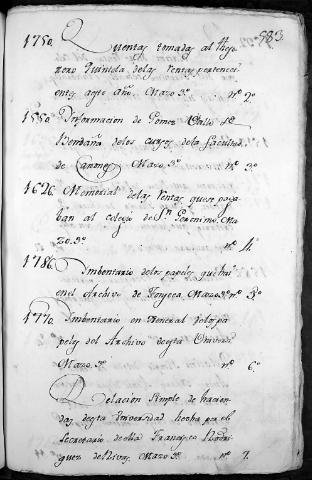 583.
1750. Quentas tomadas al theso
rero Quintela de las rentas perteneci
entes aeste año. Mazo 3º nº 2º
1550. Informacion de Gomez
de los cursos de la facultad
de Canones Mazo 3º nº 3º
1626. Memorial de las rentas que se paga
ban al colegio de Sn Geronimo. Ma
zo. 3º nº 4º
1786. Imbentario de los papeles que hai
en el Archivo de Fonseca. Mazo 3º nº 5º
1770. Imbentario en General de los pa
peles del Archivo de esta Universd.
Mazo. 3º nº 6º
Relacion simple de hacien
das de esta Universidad hecha por el
Secretario de ella Francisco Rodri
guez de Mazo 3º nº 7.